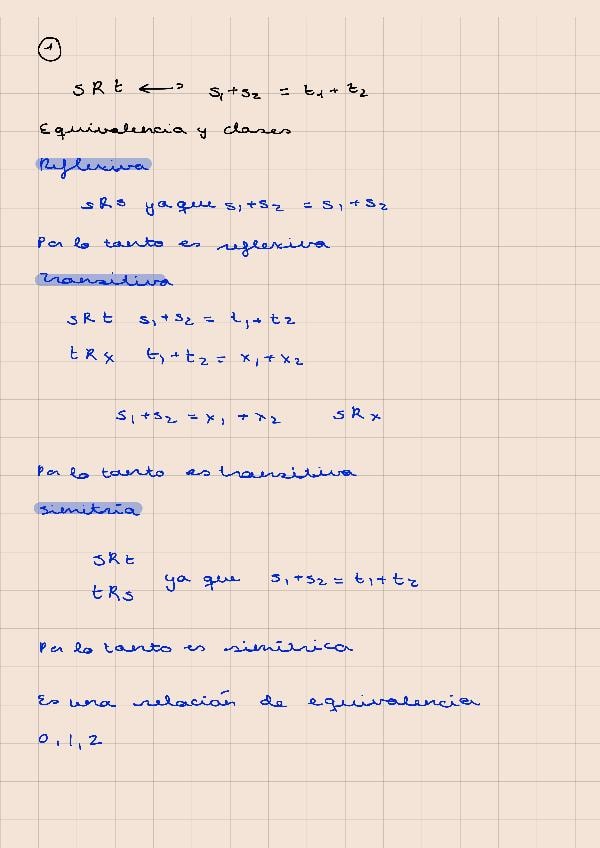 1
sRt ⟷ s₁+s₂ = t₁+t₂
Equivalencia y clases
Reflexiva
sRs ya que s₁+s₂ = s₁+s₂
Por lo tanto es reflexiva
Transitiva
sRt s₁+s₂ = t₁+t₂
tRx t₁+t₂ = x₁+x₂
s₁+s₂ = x₁+x₂ sRx
Por lo tanto es transitiva
Simitría
sRt
tRs ya que s₁+s₂ = t₁+t₂
Por lo tanto es simétrica
Es una relación de equivalencia
0,1,2